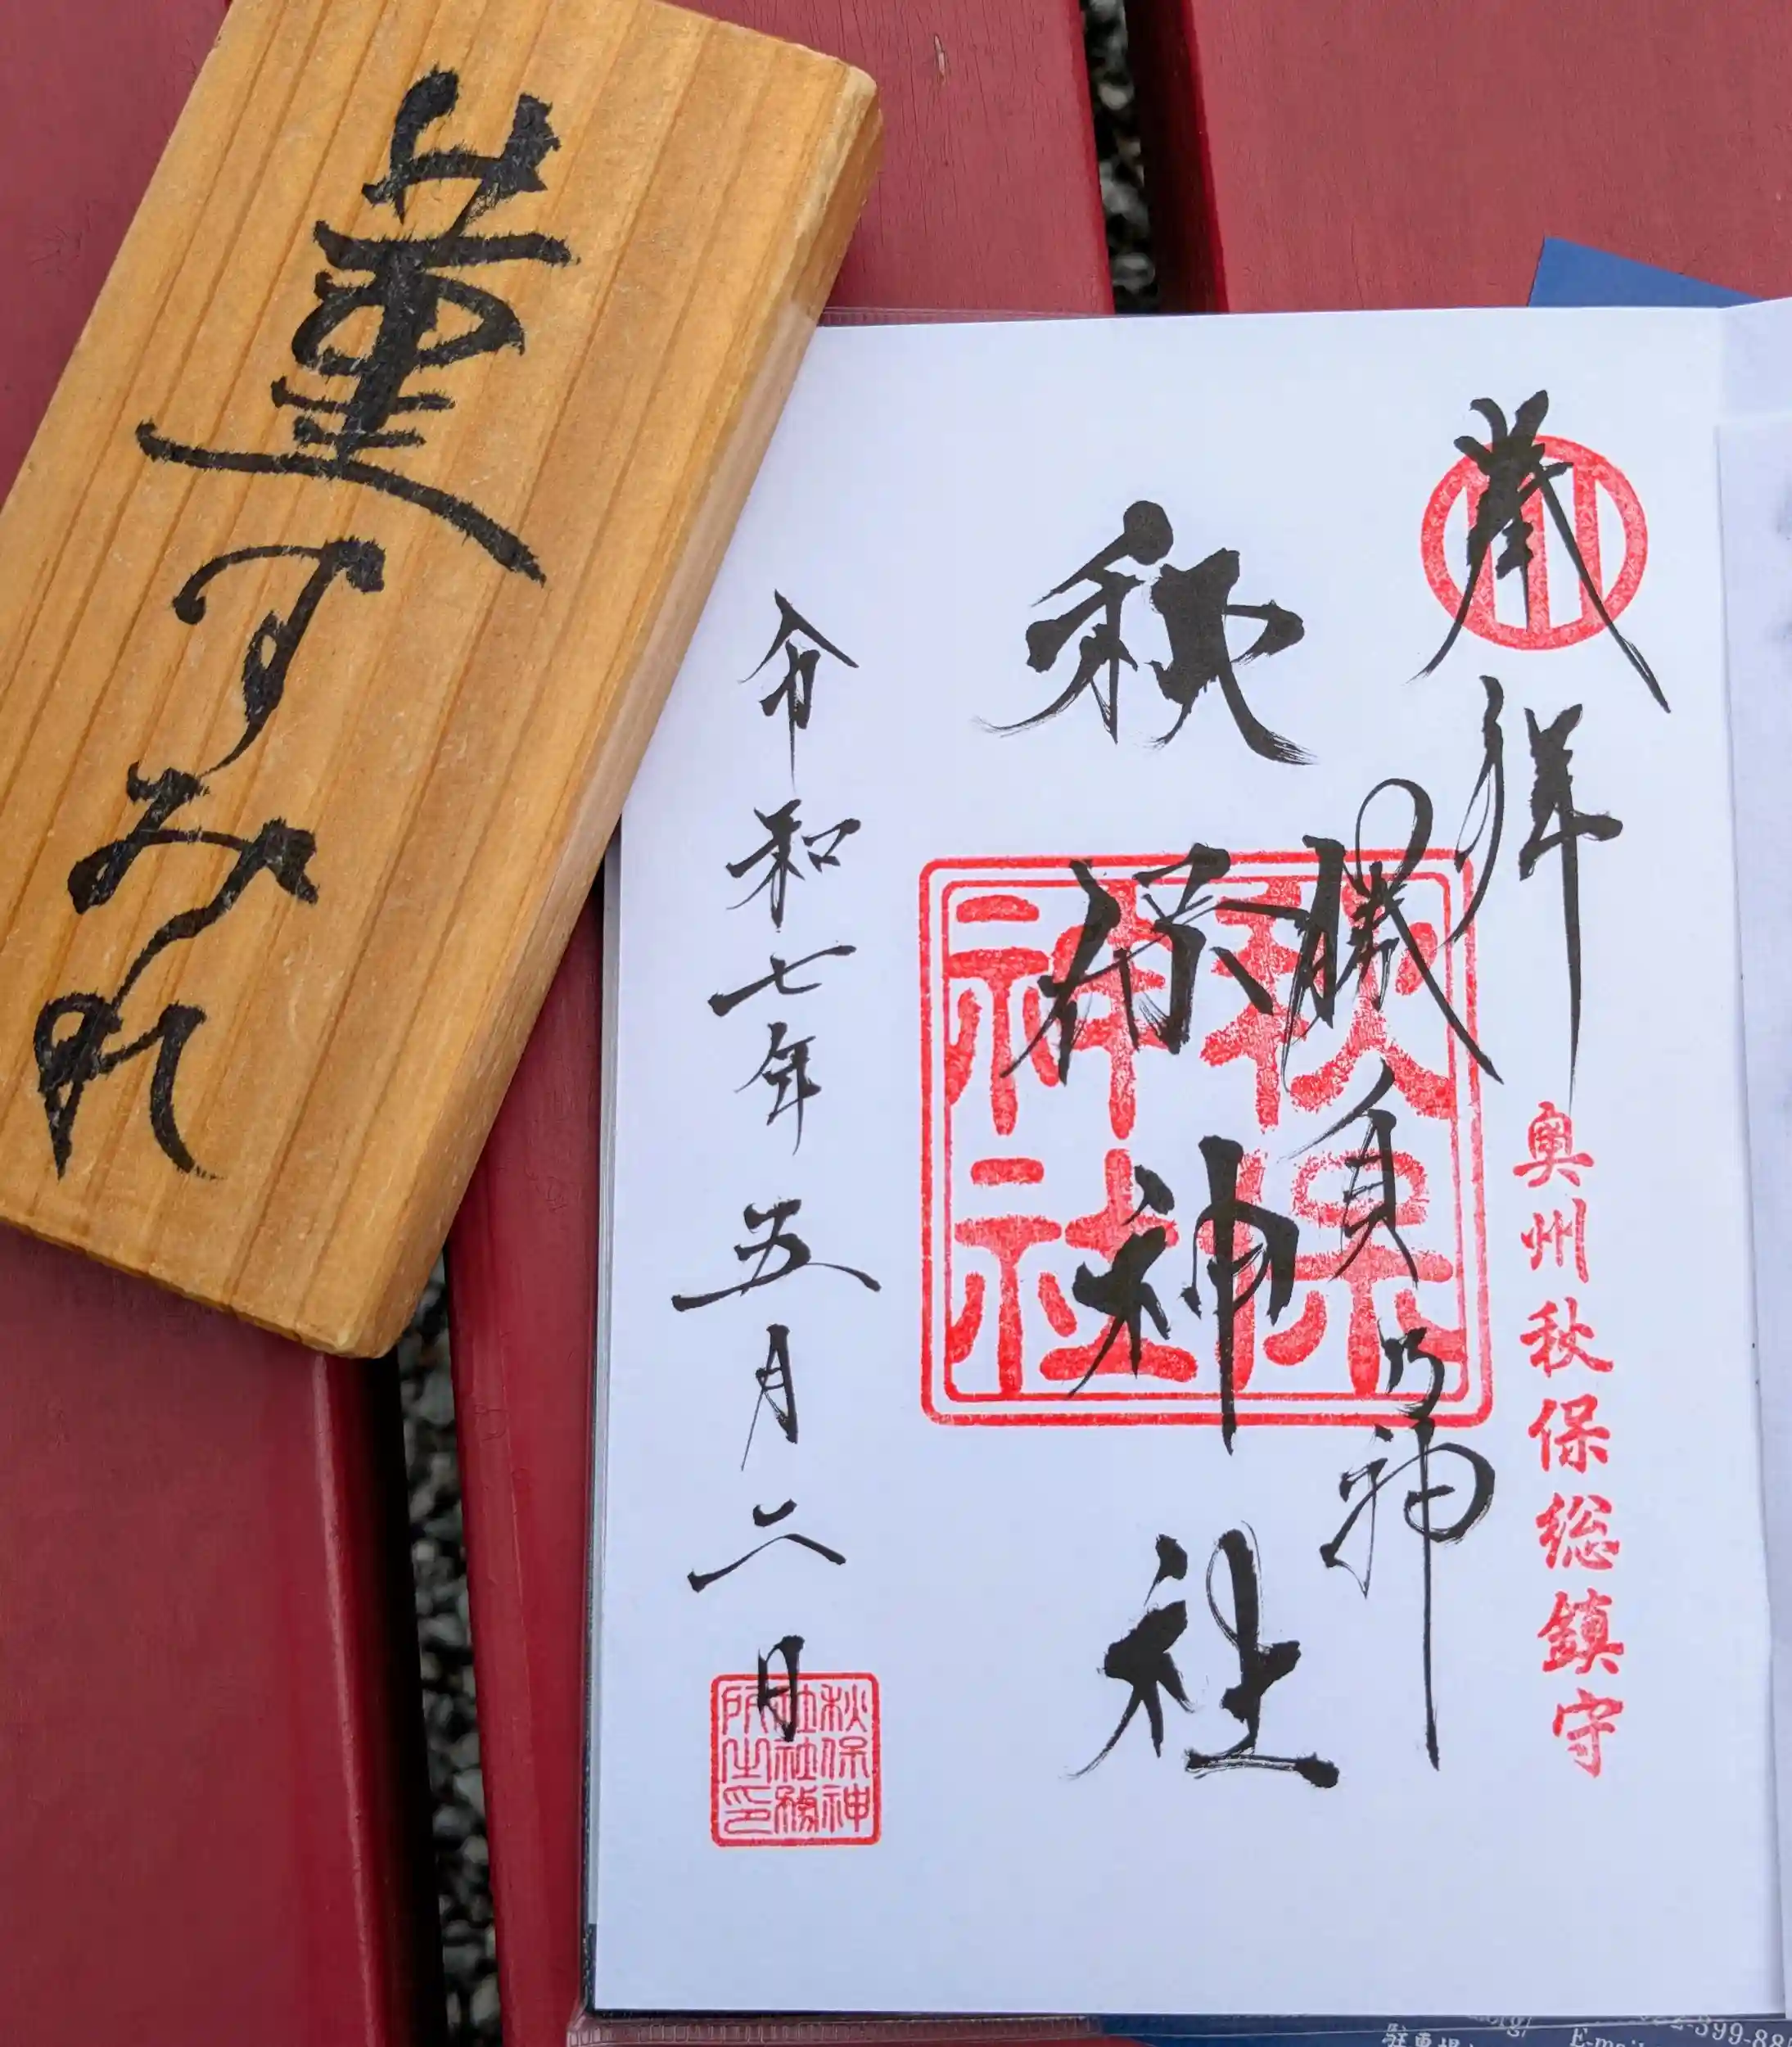 菫すみれ
奉拝
奥州秋保総鎮守
勝負乃神
秋保神社
秋保
神社
令和七年五月六日
秋保神
社社務
所之印
E-mail